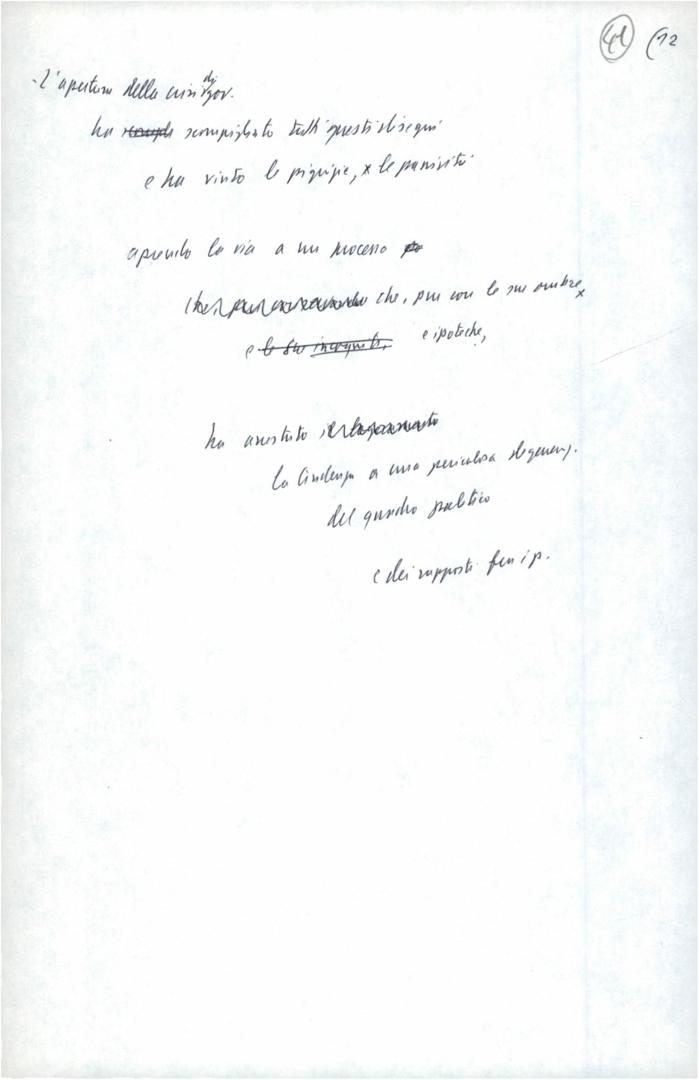 41 (12
- L'apertura della crisi di gov.
ha scompigliato tutti questi disegni
e ha vinto le pigrizie, x le passività
aprendo la via a un processo
che, pur con le sue ombre x
e ipoteche,
ha arrestato
la tendenza a una pericolosa degeneraz.
del quadro politico
e dei rapporti fra i p.